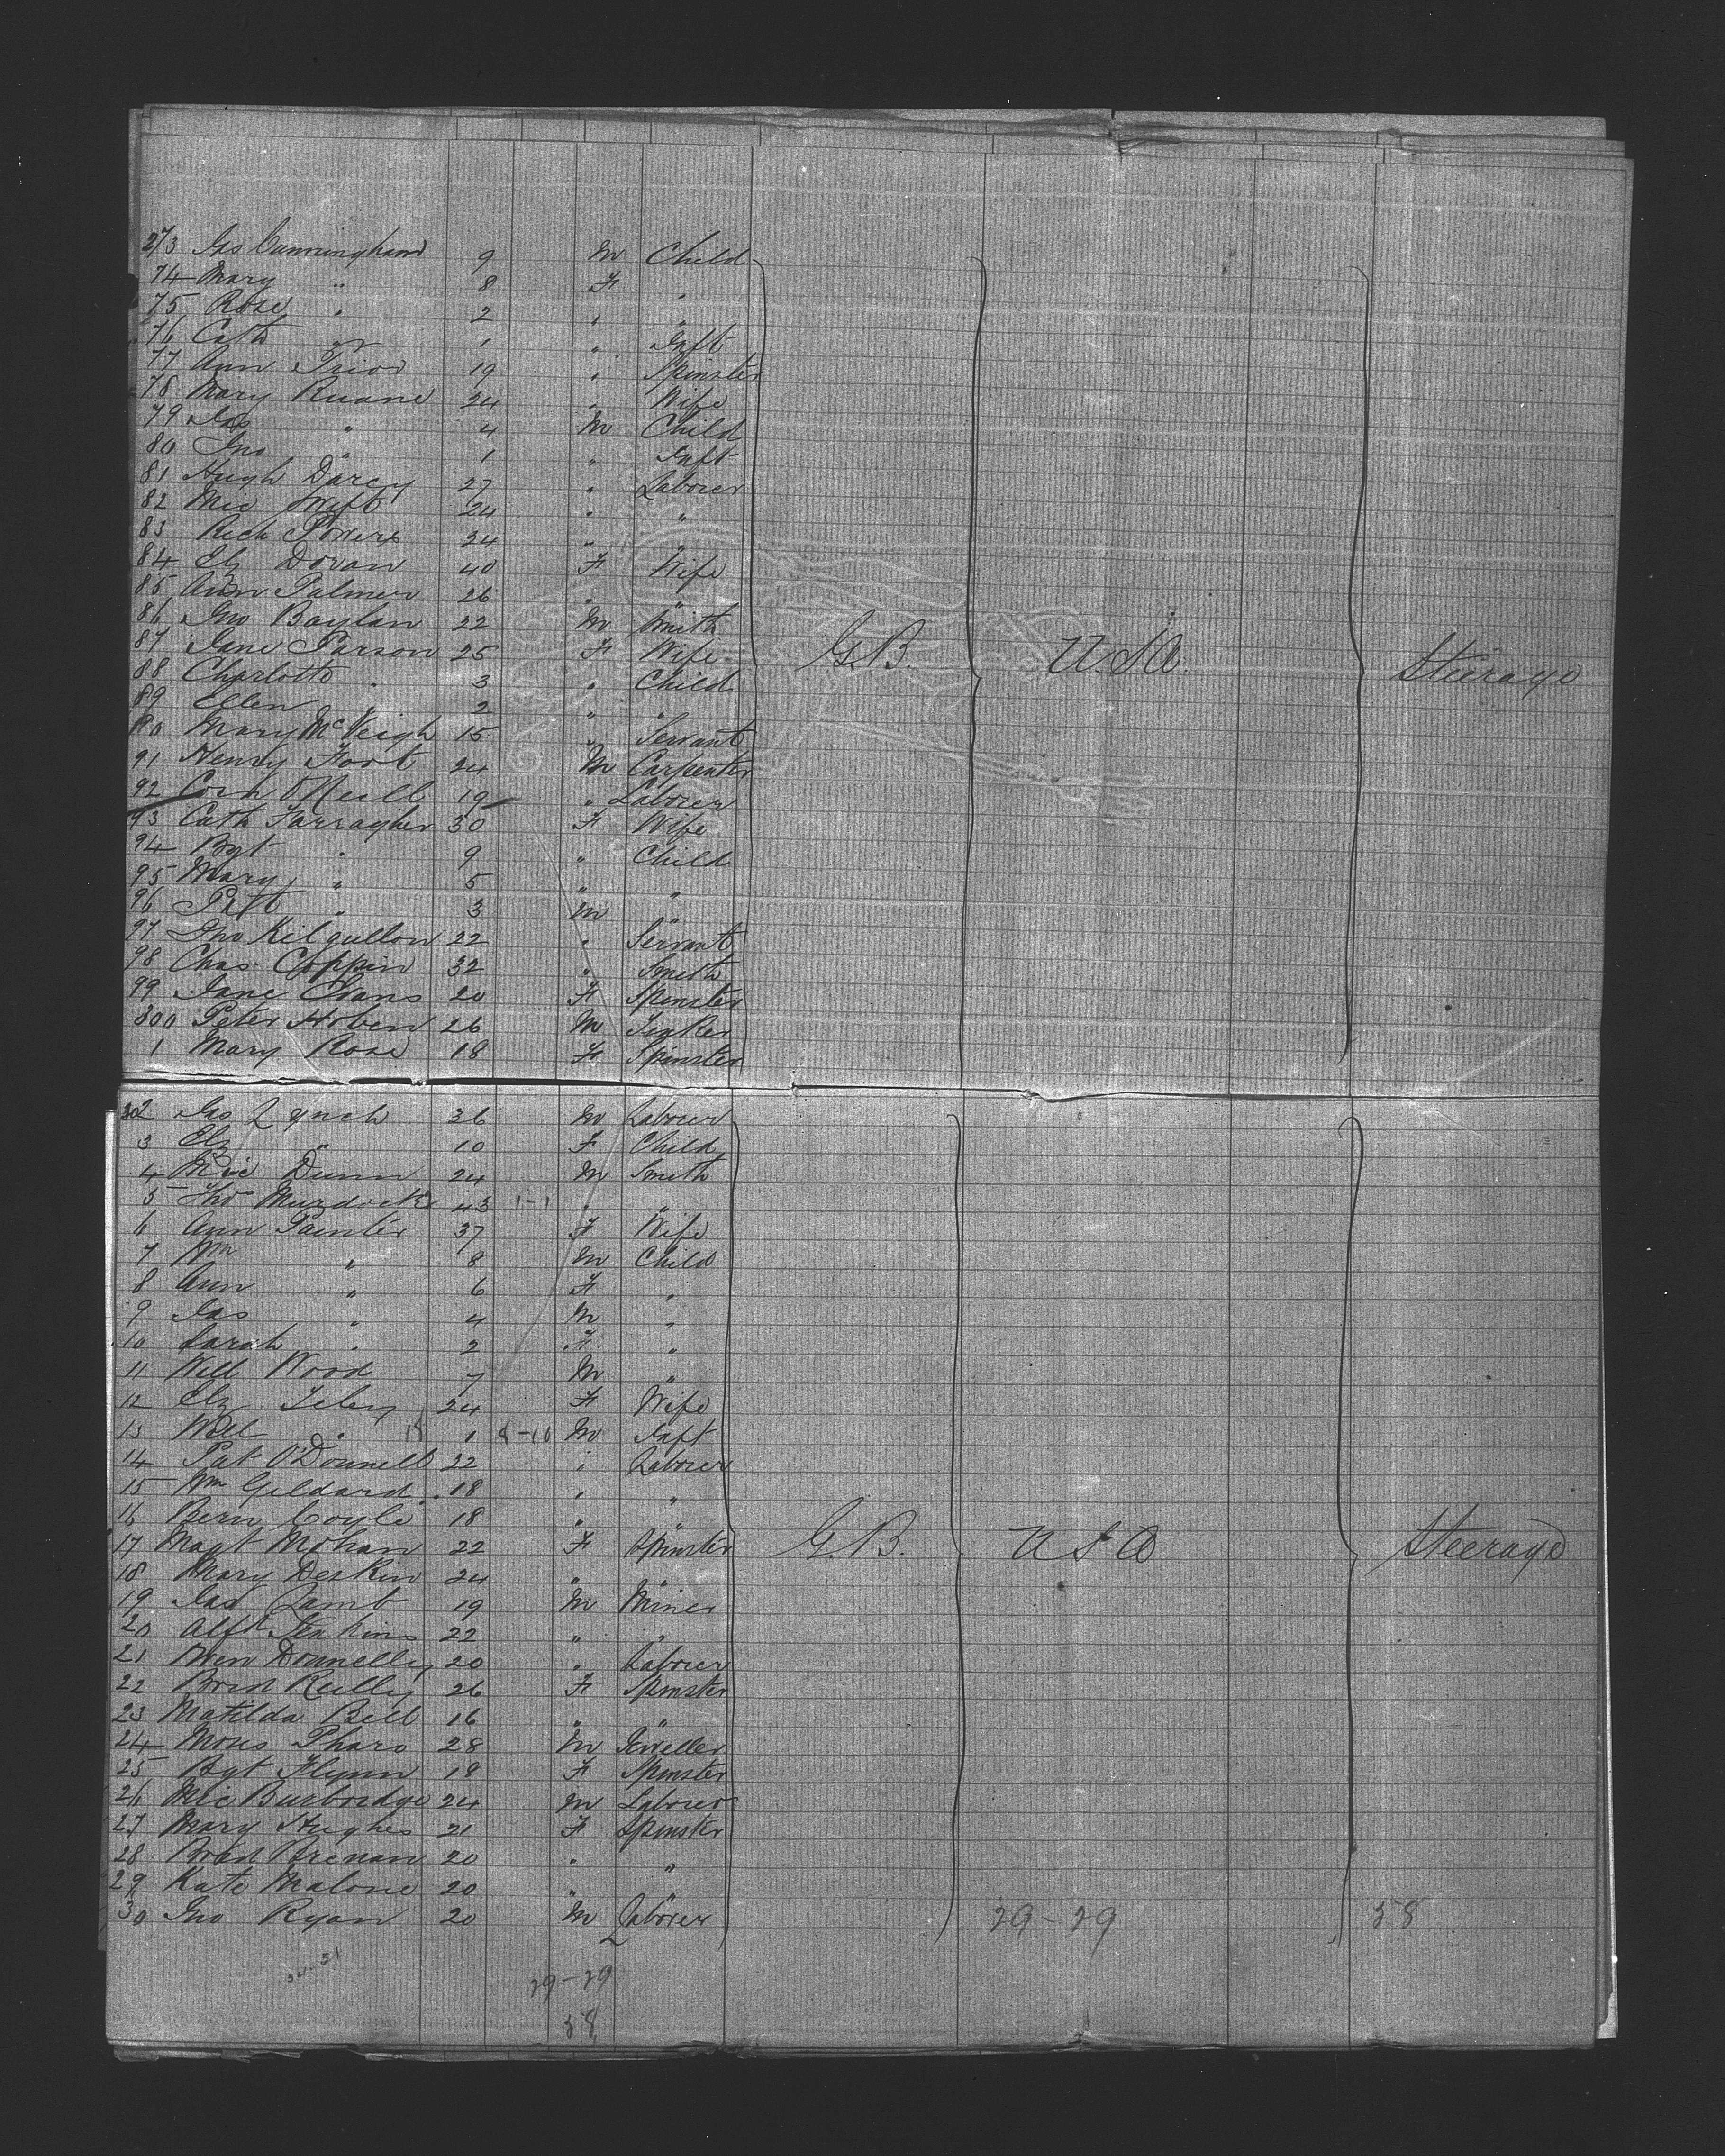 273 Jas Cunningham 9 M Child
74 Mary " 8 F "
75 Rose " 2 " "
76 Cath " 1 " Inft
77 Ann Prior 19 " Spinster
78 Mary Ruane 24 " Wife
79 Jas " 4 M Child
80 Jno " 1 " Inft
81 Hugh Darcy 27 " Laborer
82 Mic 24 " "
83 Rich Powers 24 " "
84 Elz Doran 40 F Wife
85 Ann Palmer 26 " "
86 Jno Boylan 22 M Smith
87 Jane Parson 25 F Wife G.B. U.S.A Steerage
88 Charlotte " 3 " Child
89 Ellen " 2 " "
90 Mary McVeigh 15 " Servant
91 Henry Foot 24 M Carpenter
92 Corn O'Neill 19 " Laborer
93 Cath Farragher 30 F Wife
94 Bgt " 9 " Child
95 Mary " 5 " "
96 Patk " 3 M "
97 Jno Kilgullon 22 " Servant
98 Chas Coppin 32 " Smith
99 Jane Evans 20 F Spinster
300 Peter Hoben 26 M
1 Mary Rose 18 F Spinster
302 Jas Lynch 36 M Laborer
3 Elz " 10 F Child
4 Mic Dunn 24 M Smith
5 Thos Murdock 43 1-1 " "
6 Ann Painter 37 F Wife
7 Wm " 8 M Child
8 Ann " 6 F "
9 Jas " 4 M "
10 Sarah " 2 F "
11 Will Wood 7 M "
12 Elz 24 F Wife
13 Will " 1 M Inft
14 Pat O'Donnell 22 " Laborer
15 Wm Geldard 18 " "
16 Bern Coyle 18 " "
17 Magt Mohan 22 F Spinster G.B. U S A Steerage
18 Mary Deskin 24 " "
19 Jas Lamb 19 M Miner
20 Alfd Jenkins 22 " "
21 Owen Donnelly 20 " Laborer
22 Brid Reilly 26 F Spinster
23 Matilda Bell 16 " "
24 Mons Pharo 28 M Jeweller
25 Bgt Flynn 18 F Spinster
26 Mic Burbridge 24 M Laborer
27 Mary Hughes 21 F Spinster
28 Brid Brenan 20 " "
29 Kate Malone 20 " "
30 Jno Ryan 20 M Laborer 29-29 58
29-29
58